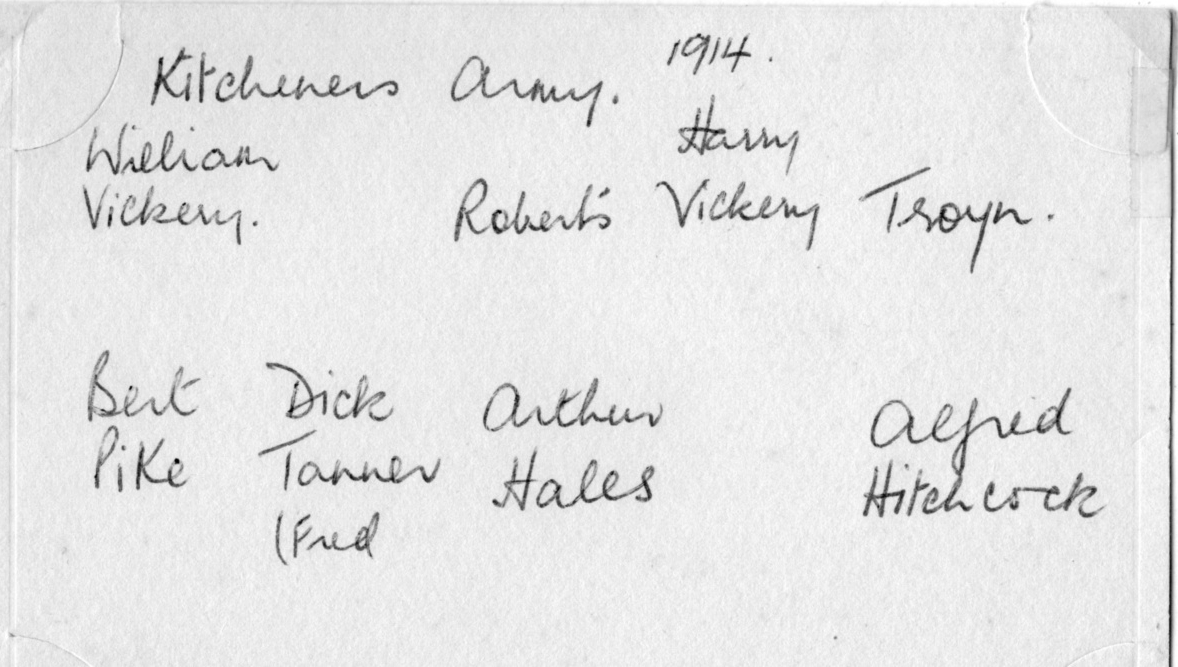 Kitcheners Army. 1914.
William Harry
Vickery. Roberts Vickery Troyn.
Bert Dick Arthur Alfred
Pike Tanner Hales Hitchcock
(Fred